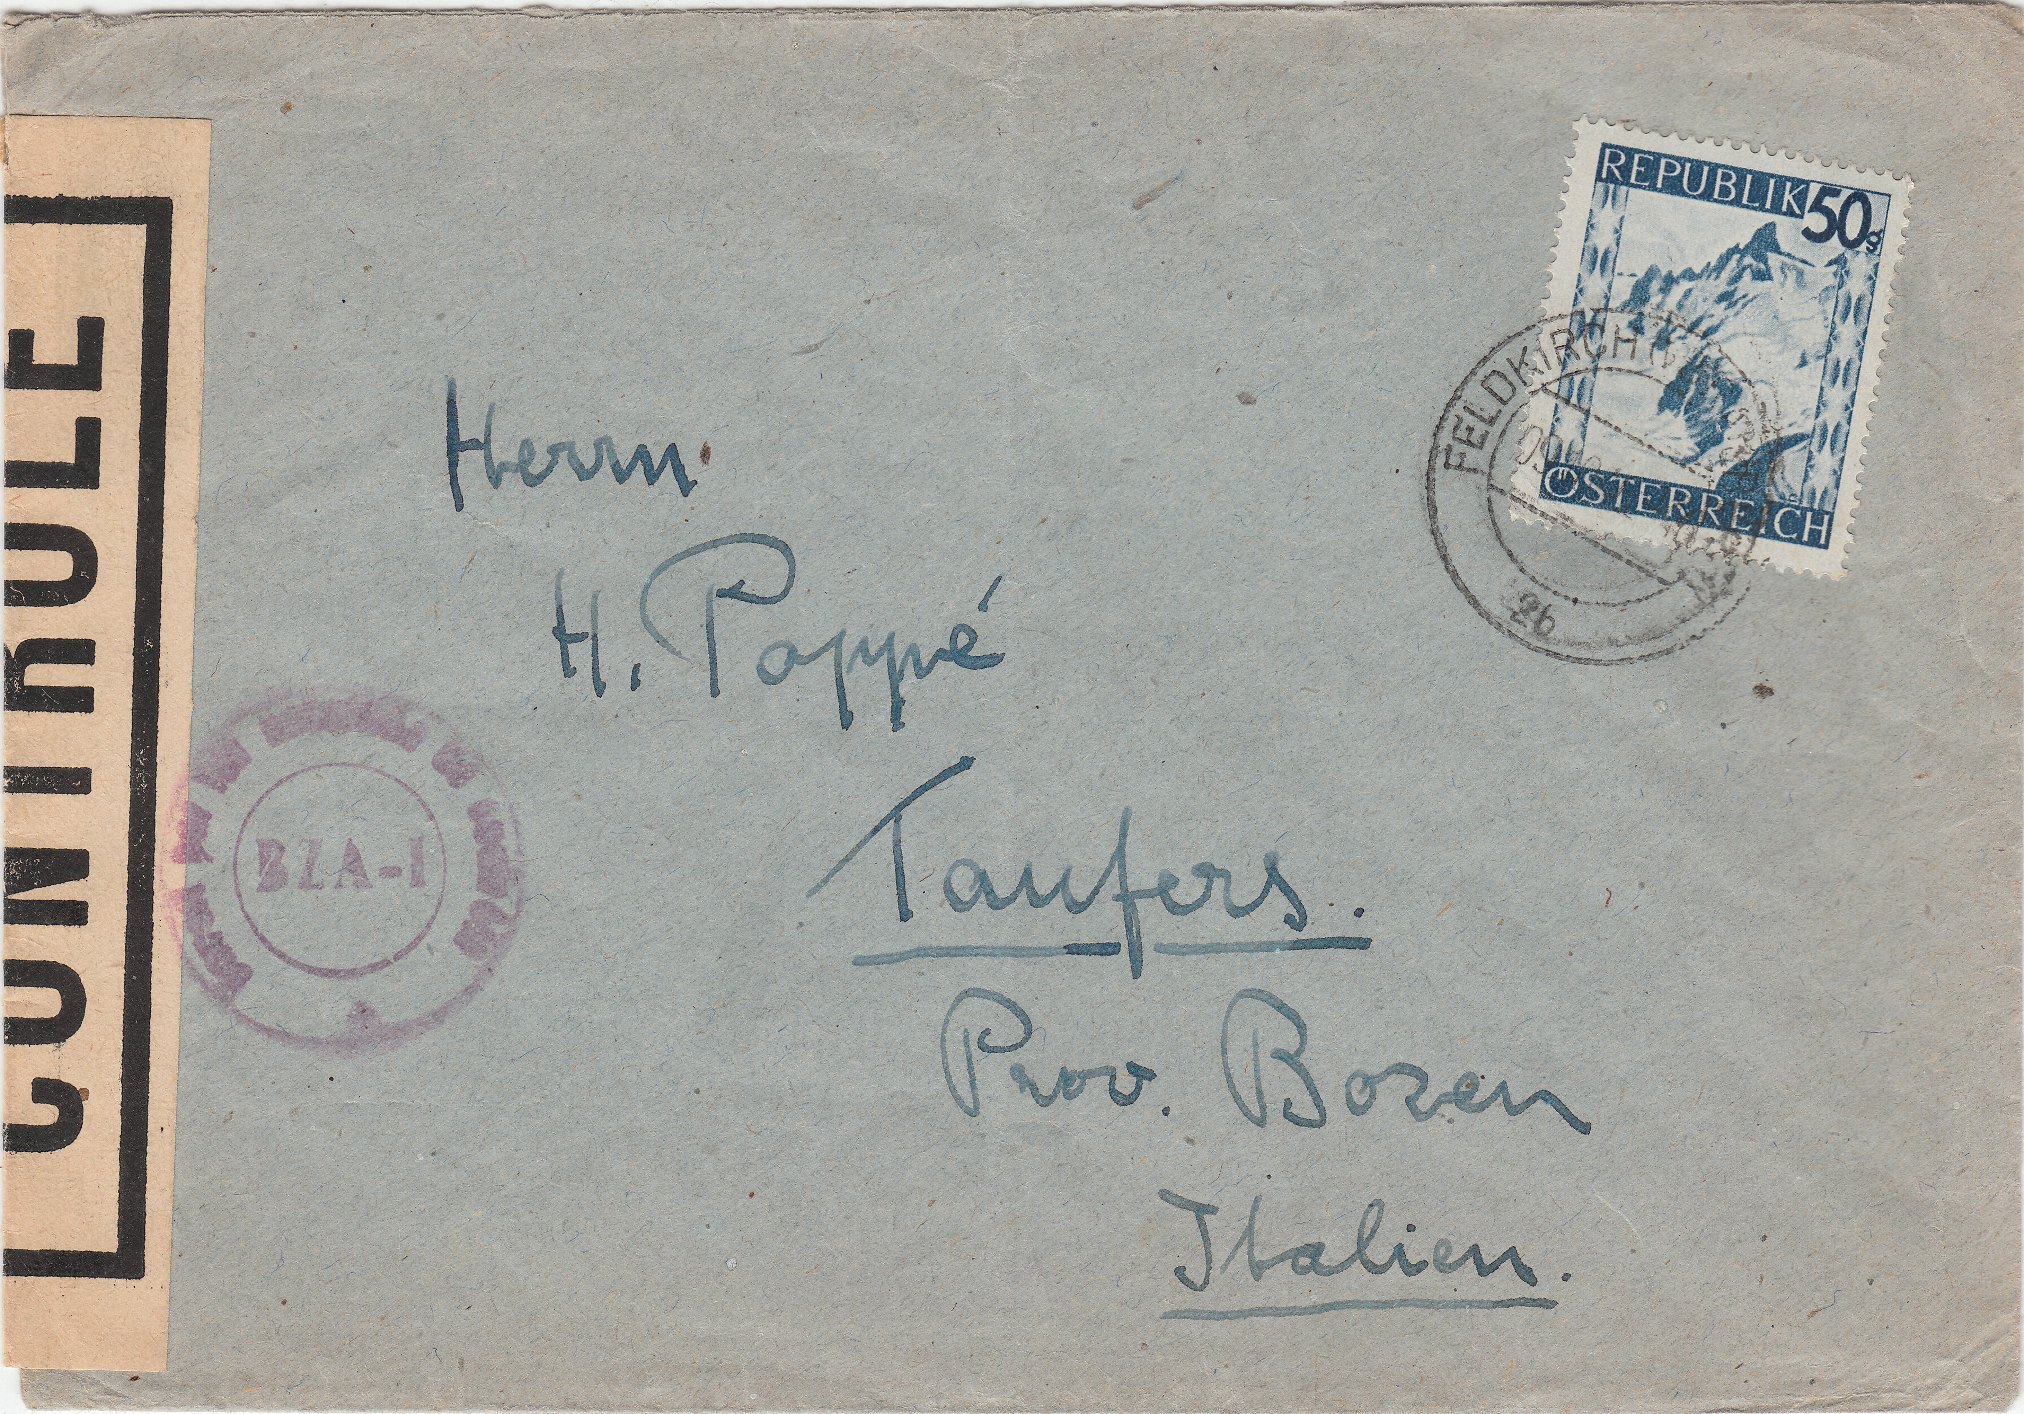 CONTROLE
REPUBLIK 50g
ÖSTERREICH
FELDKIRCH
2b
Herrn
H. Pappé
BZA-1
Taufers.
Prov. Bozen
Italien.